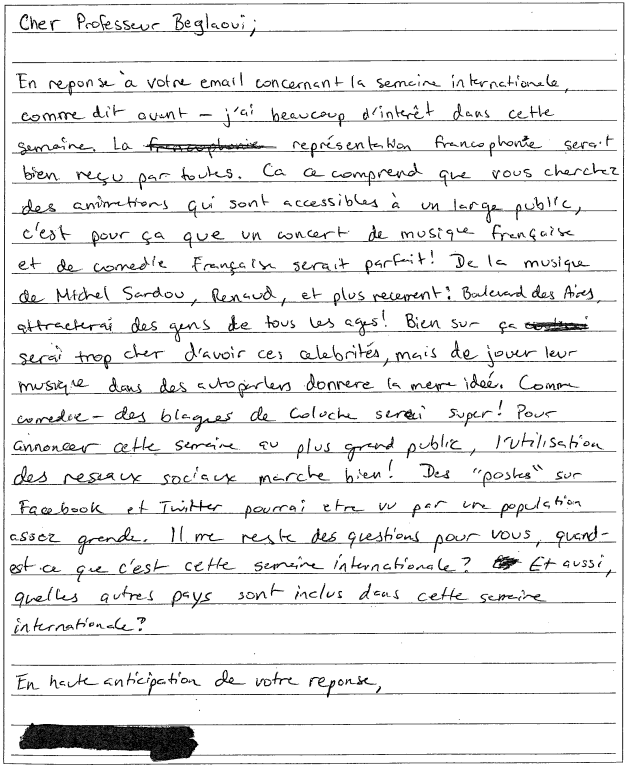 Cher Professeur Beglaoui;
En reponse à votre email concernant la semaine internationale,
comme dit avant – j'ai beaucoup d'interêt dans cette
semaine. La francophonie représentation francophonie serait
bien reçu par toutes. Ca ce comprend que vous cherchez
des animations qui sont accessibles à un large public,
c'est pour ça que un concert de musique française
et de comedie Française serait parfait! De la musique
de Michel Sardou, Renaud, et plus recement: Boulevard des Aires,
attracterai des gens de tous les ages! Bien sur ça
serai trop cher d'avoir ces celebrités, mais de jouer leur
musique dans des autoparlers donnere la meme ideé. Comme
comedie – des blagues de Coluche serai super! Pour
annoncer cette semaine au plus grand public, l'utilisation
des reseaux sociaux marche bien! Des "postes" sur
Facebook et Twitter pourrai etre vu par une population
assez grande. Il me reste des questions pour vous, quand-
est-ce que c'est cette semaine internationale? Et aussi,
quelles autres pays sont inclus dans cette semaine
internationale?
En haute anticipation de votre reponse,